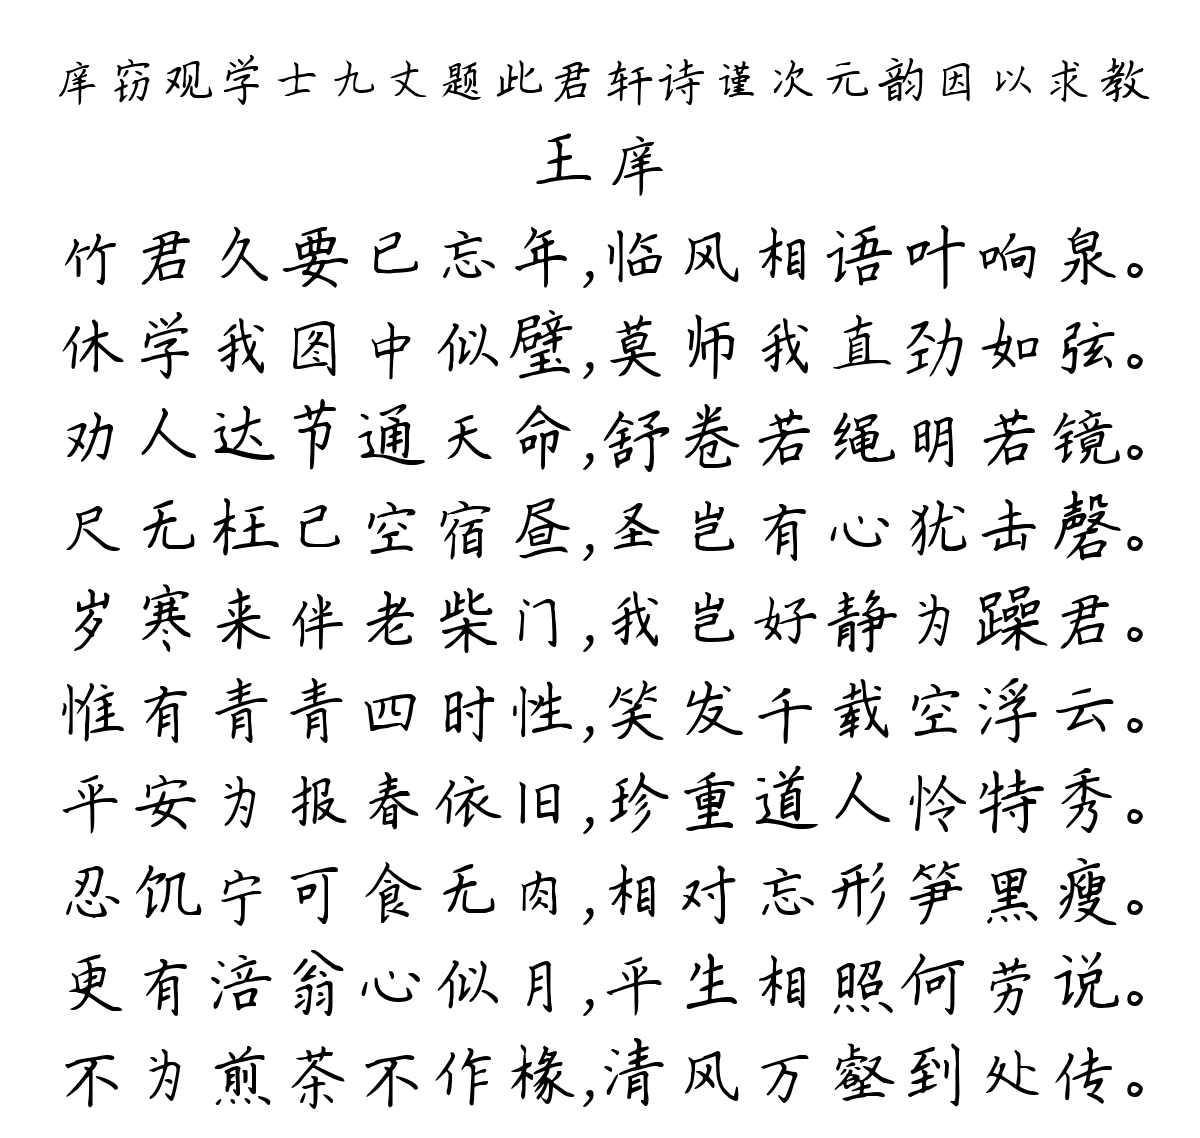 庠窃观学士九丈题此君轩诗谨次元韵因以求教
王庠
竹君久要已忘年,临风相语叶响泉。
休学我图中似璧,莫师我直劲如弦。
劝人达节通天命,舒卷若绳明若镜。
尺无枉己空宿昼,圣岂有心犹击磬。
岁寒来伴老柴门,我岂好静为躁君。
惟有青青四时性,笑发千载空浮云。
平安为报春依旧,珍重道人怜特秀。
忍饥宁可食无肉,相对忘形笋黑瘦。
更有涪翁心似月,平生相照何劳说。
不为煎茶不作椽,清风万壑到处传。